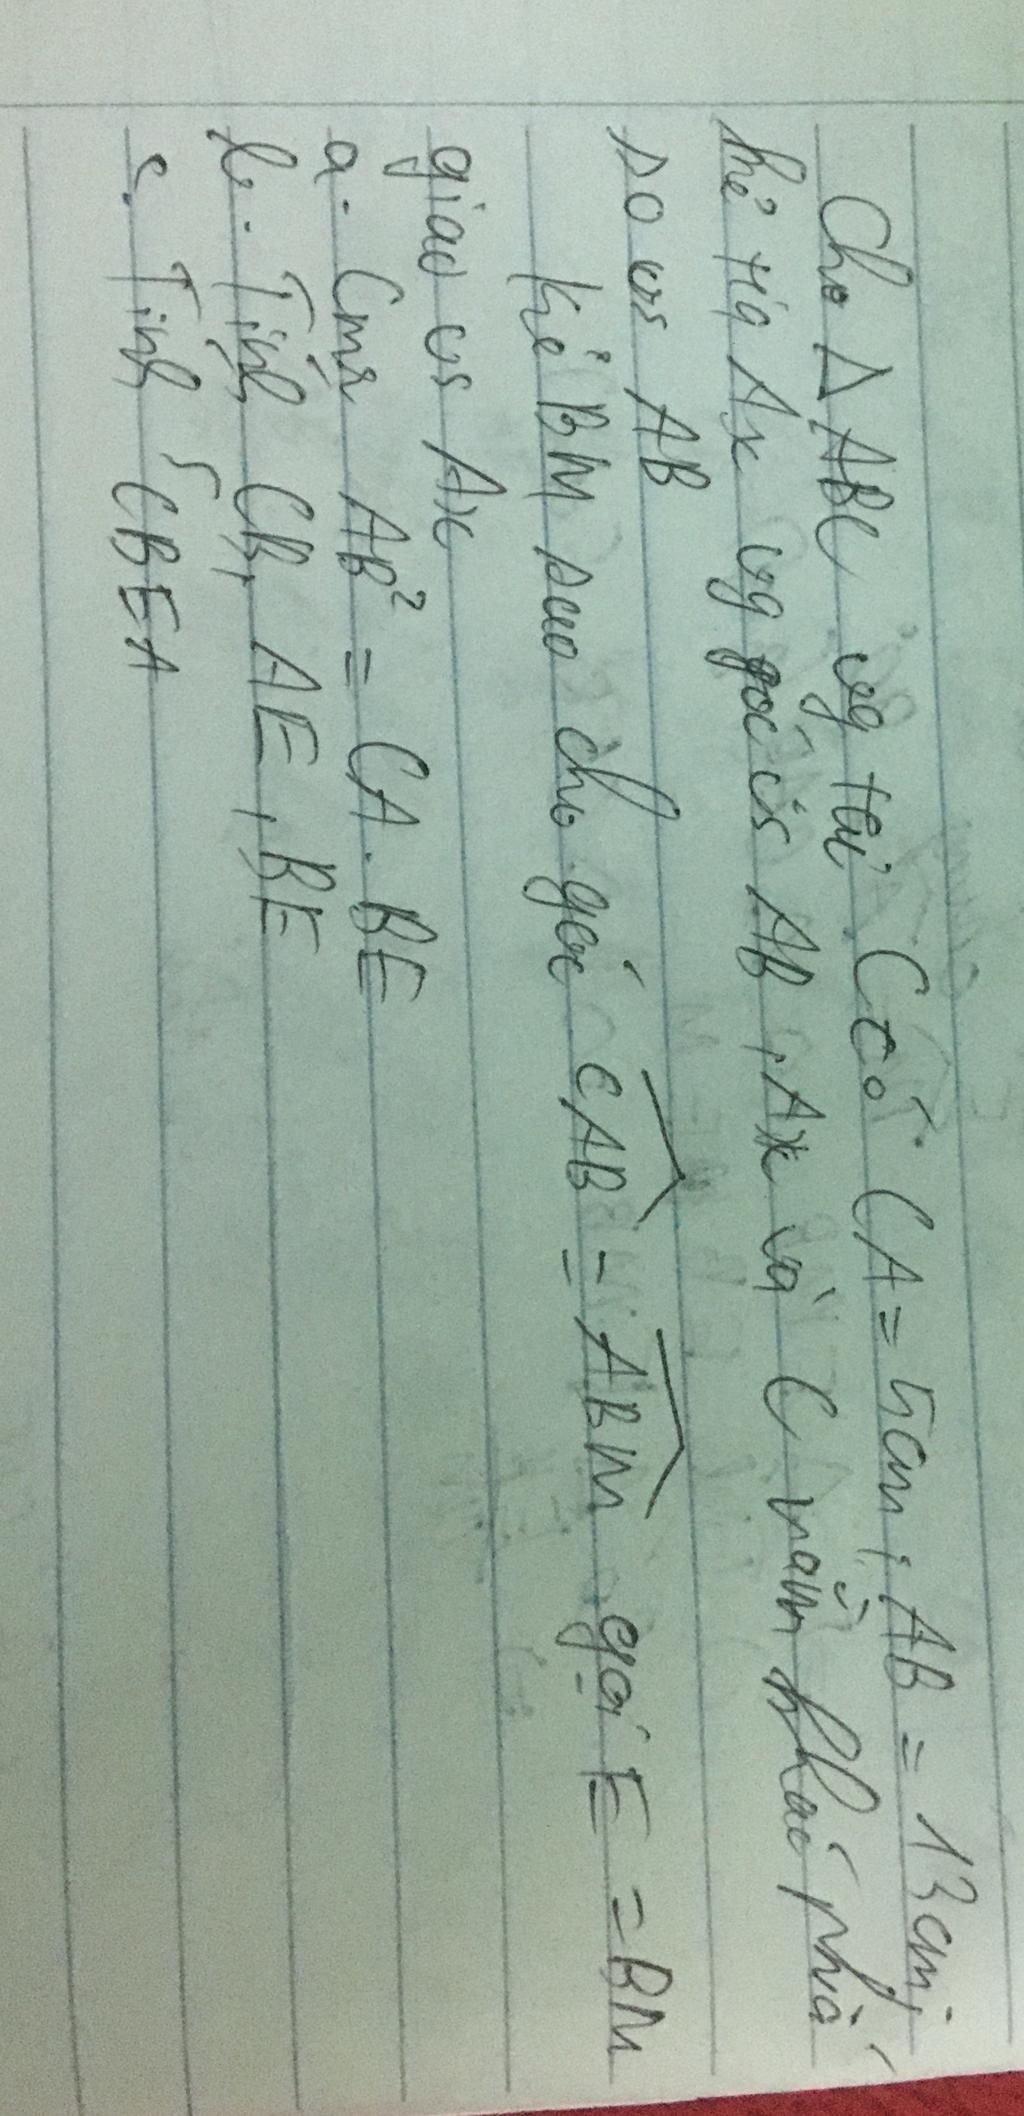 Cho Δ ABC vg tại C có CA = 5cm; AB = 13cm;
kẻ tia Ax vg góc vs AB, Ax và C nằm khác phía
so vs AB
kẻ BM sao cho góc CAB = ABM gọi E = BM
giao vs Ax
a. Cmr AB² = CA. BE
b. Tính CB, AE, BE
c. Tính S CBEA